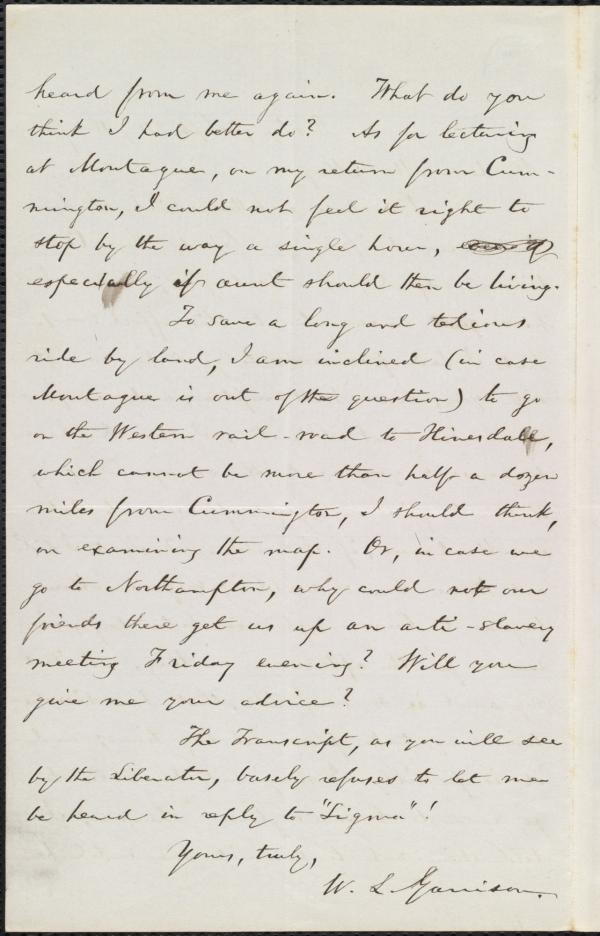 heard from me again. What do you
think I had better do? As for lecturing
at Montague, on my return from Cum-
mington, I could not feel it right to
stop by the way a single hour,
especially if aunt should then be living.
To save a long and tedious
ride by land, I am inclined (in case
Montague is out of the question) to go
on the Western rail-road to Hinesdale,
which cannot be more than half a dozen
miles from Cummington, I should think,
on examining the map. Or, in case we
go to Northampton, why could not our
friends there get us up an anti-slavery
meeting Friday evening? Will you
give me your advice?
The Transcript, as you will see
by the Liberator, basely refuses to let me
be heard in reply to "Sigma"!
Yours, truly,
W. L. Garrison.